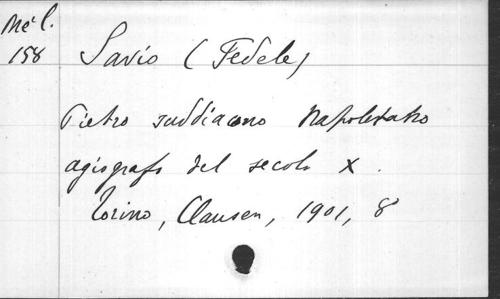 Mél.
158
Savio (Fedele)
Pietro suddiacono Napoletano
agiografo del secolo X.
Torino, Clausen, 1901, 8°